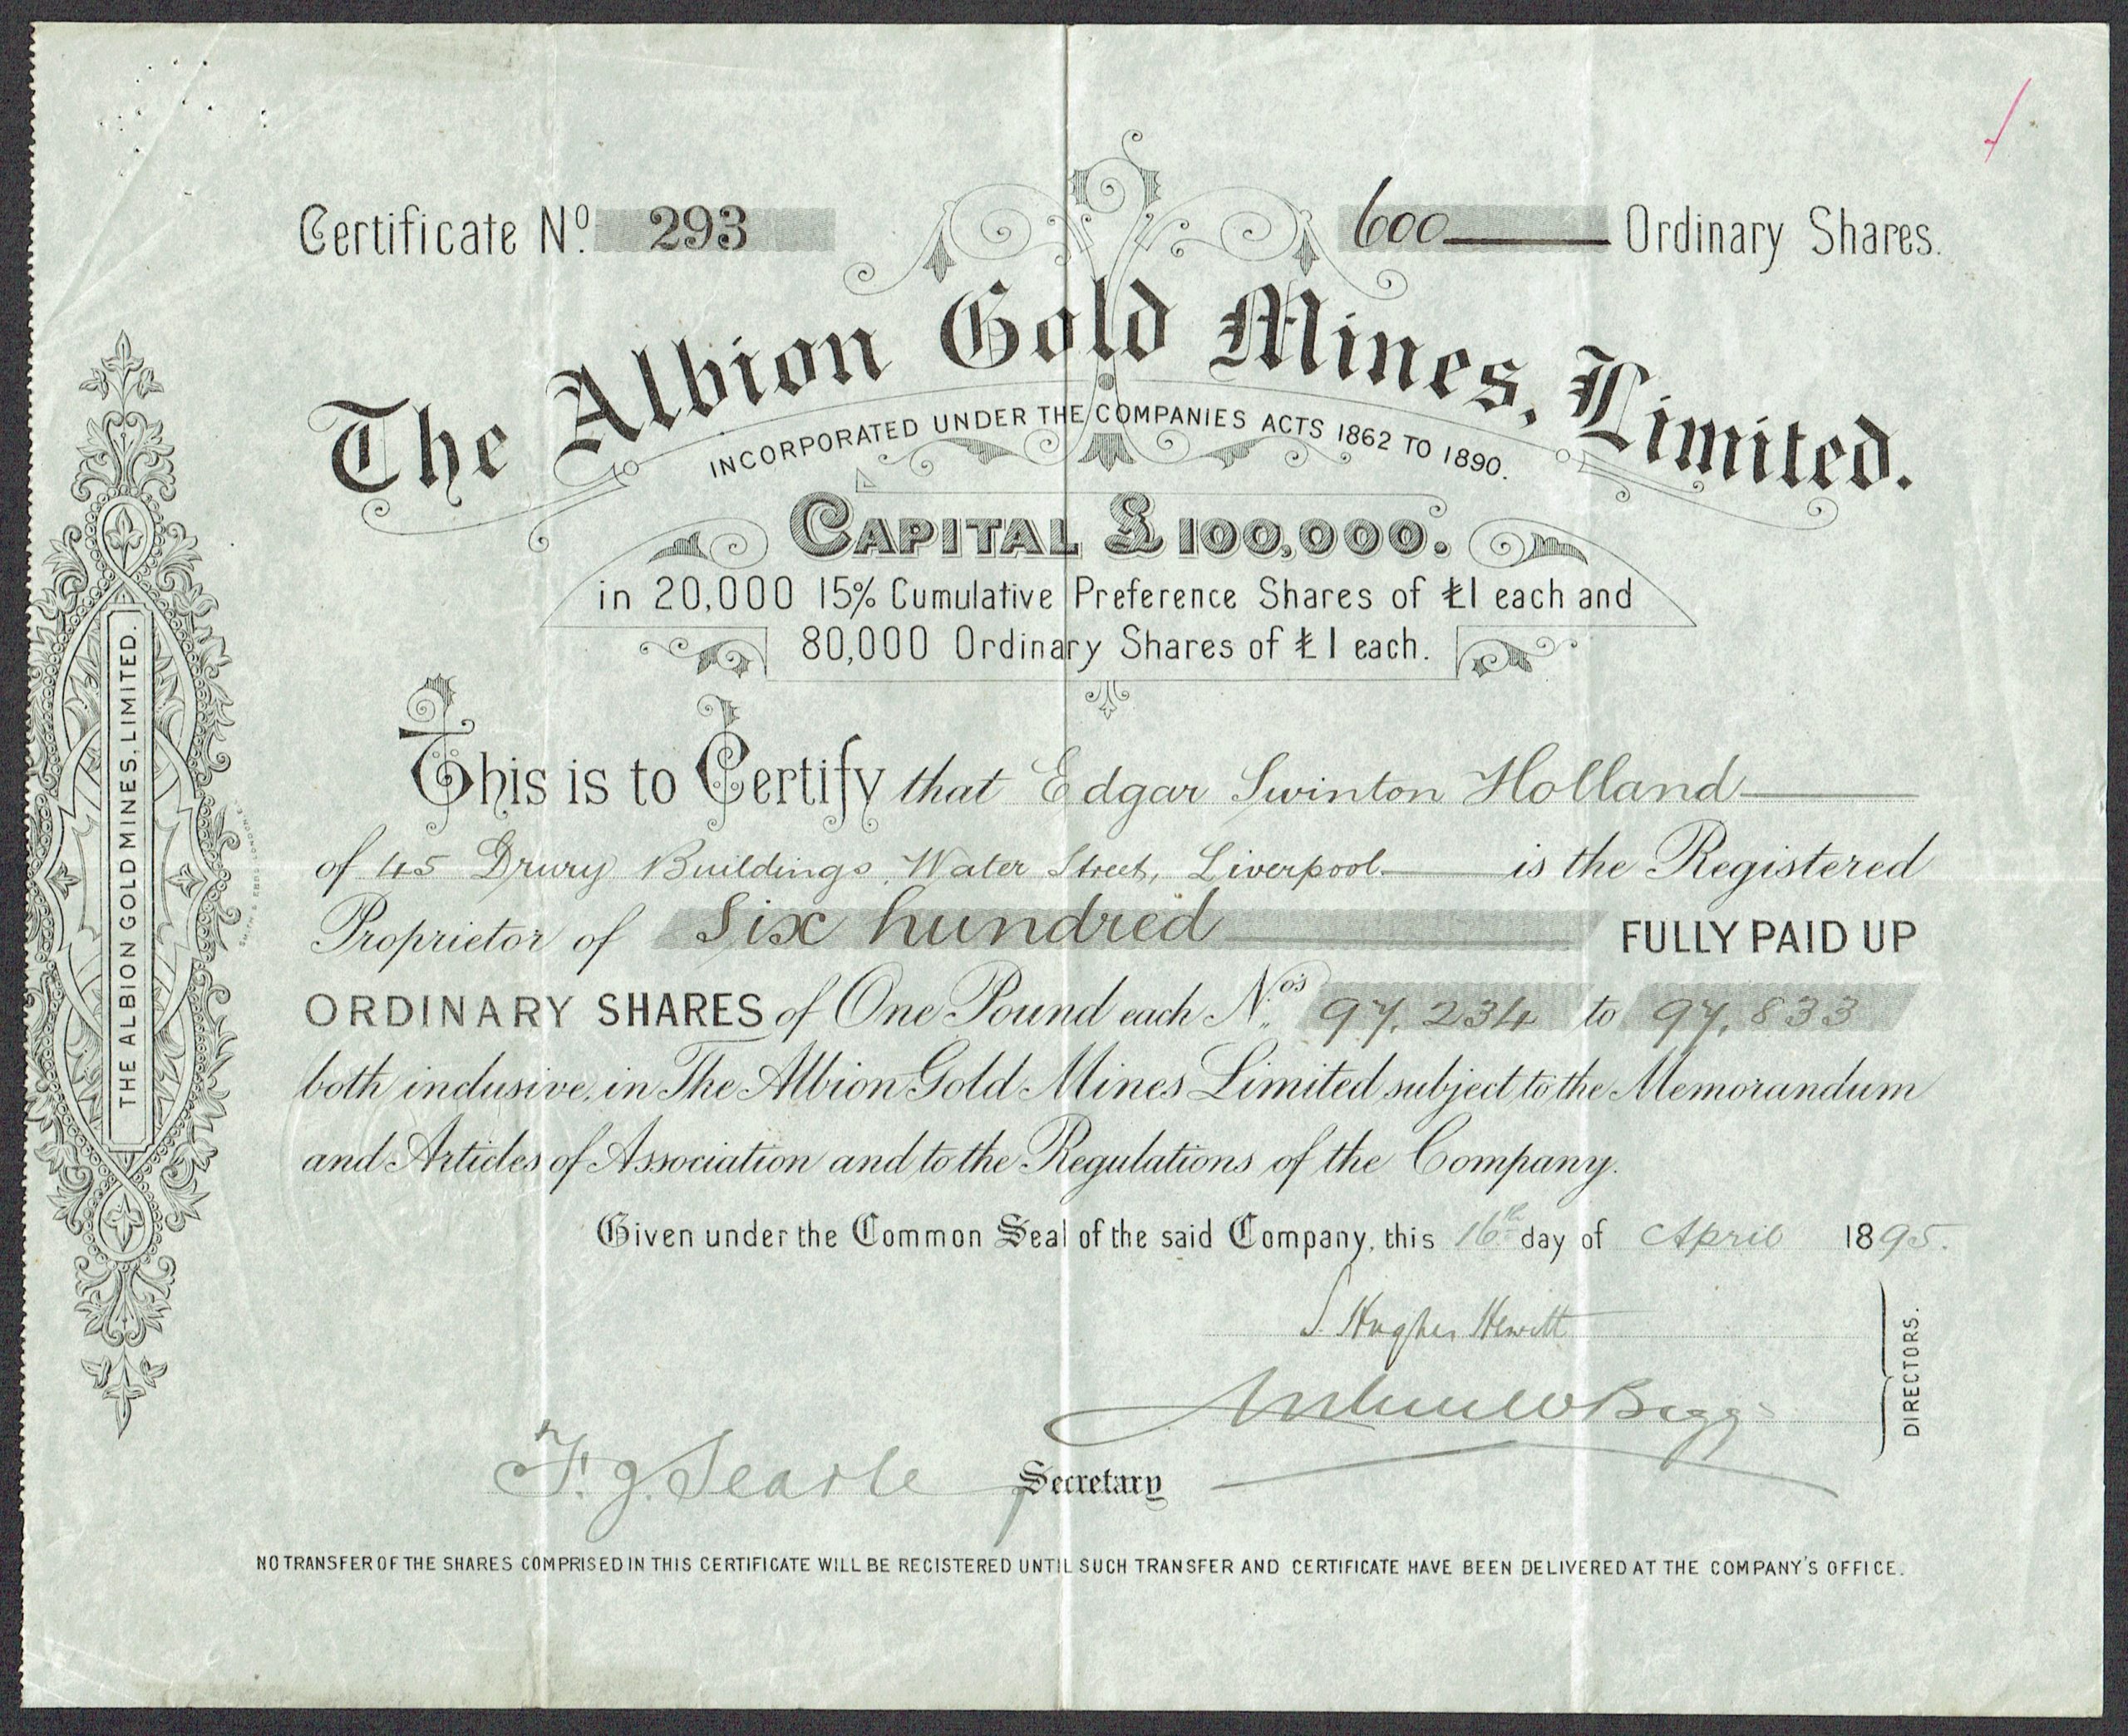 Certificate Nº 293
600 Ordinary Shares.
The Albion Gold Mines, Limited.
INCORPORATED UNDER THE COMPANIES ACTS 1862 TO 1890.
CAPITAL £100,000.
in 20,000 15% Cumulative Preference Shares of £1 each and
80,000 Ordinary Shares of £1 each.
This is to Certify that Edgar Swinton Holland
of 45 Drury Buildings, Water Street, Liverpool. is the Registered
Proprietor of Six hundred FULLY PAID UP
ORDINARY SHARES of One Pound each Nos 97,234 to 97,833
both inclusive, in The Albion Gold Mines Limited subject to the Memorandum
and Articles of Association and to the Regulations of the Company.
Given under the Common Seal of the said Company, this 16th day of April 1895.
S. Hughes Hewitt
Bigg
DIRECTORS.
F. J. Searle Secretary
NO TRANSFER OF THE SHARES COMPRISED IN THIS CERTIFICATE WILL BE REGISTERED UNTIL SUCH TRANSFER AND CERTIFICATE HAVE BEEN DELIVERED AT THE COMPANY'S OFFICE.
THE ALBION GOLD MINES, LIMITED.